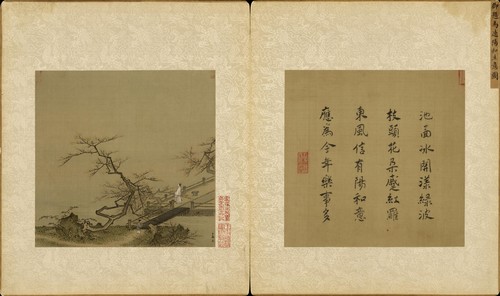 池面冰開漾綠波
枝頭花朶蹙紅羅
東風信有陽和意
應為今年樂事多